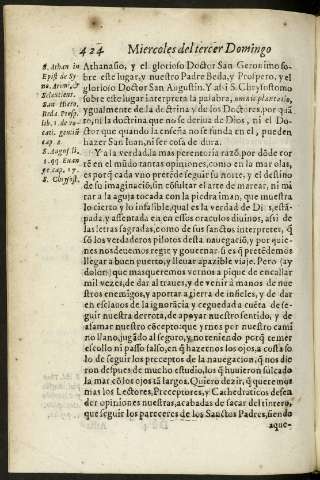 424 Miercoles del tercer Domingo
S. Athan in
Epist de Sy
no. Arim, &
Seleutient.
San Hiero,
Beda Prosp.
lib. 1. de vo
cati. gentiũ
cap. 2
S. August li.
1. 99 Euan
ge. cap. 17.
S. Chrysost.
Athanasio, y el glorioso Doctor San Geronimo so-
bre este lugar, y nuestro Padre Beda, y Prospero, y el
glorioso Doctor San Augustin. Y assi S. Chrysostomo
sobre este lugar interpreta la palabra, omnis plantatio,
ygualmente de la doctrina y de los Doctores, por q̃
ni la doctrina que no se deriua de Dios, ni el Do-
ctor que quando la enseña no se funda en el, pueden
hazer San Iuan, ni ser cosa de dura.
Y a la verdad, la mas perentoria razõ por dõde ror
rẽ en el mũdo tantas opiniones, como en la mar olas,
es porq̃ cada vno pretẽde seguir su norte, y el destino
de su imaginaciõ, sin cõsultar el arte de marear, ni mi
rar a la aguja tocada con la piedra iman, que muestra
lo cierto y lo infalible, qual es la verdad de Dios estã-
pada, y assentada en en essos oraculos diuinos, assi de
las letras sagradas, como de sus sanctos interpretes, q̃
sõ los verdaderos pilotos desta nauegaciõ, y por quie-
nes nos deuemos regir y gouernar si es q̃ pretẽdemos
llegar a buen puerto, y lleuar apazible viaje. Pero (ay
dolor) que mas queremos vernos a pique de encallar
mil vezes, de dar al traues, y de venir à manos de nue
stros enemigos, y aportar a tierra de infieles, y de dar
en esclauos de la ignorãcia y ceguedad a cuẽta de se-
guir nuestra derrota, de apoyar nuestro sentido, y de
afamar nuestro cõcepto: que yrnos por nuestro cami
no llano, jugãdo al seguro, y no teniendo porq̃ temer
escollo ni passo falso, en q̃ hazernos los ojos, a costa so
lo de seguir los preceptos de la nauegacion, q̃ nos die
ron despues de mucho estudio, los q̃ huuieron sulcado
la mar cõ los ojos tã largos. Quiero dezir, q̃ queremos
mas los Lectores, Preceptores, y Cathedraticos defen
der opiniones nuestras, acabadas de sacar del tintero,
que seguir los pareceres de los Sanctos Padres, siendo
aque-